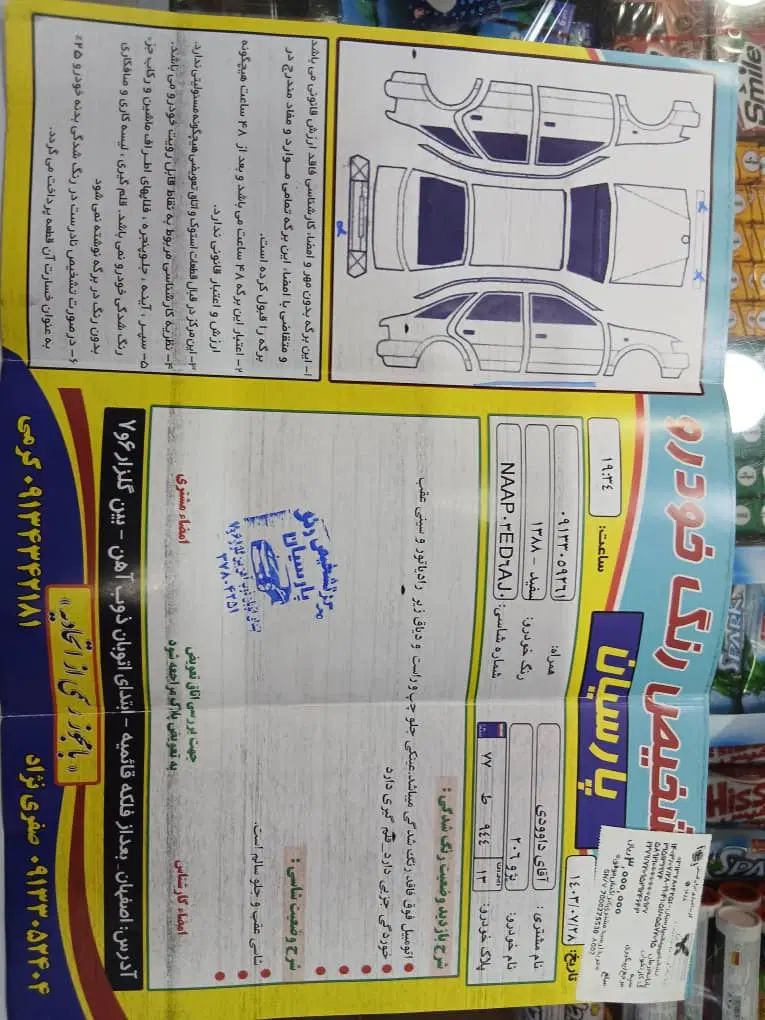 تشخیص رنگ خودرو
پارسیان
ساعت: ۱۹:۳۴
تاریخ: ۱۴۰۳/۰۷/۲۸
نام مشتری: آقای داوودی
همراه: ۰۹۱۳۳۰۵۹۲۶۱
نام خودرو: پژو ۲۰۶
رنگ خودرو: سفید - ۱۳۸۸
پلاک خودرو: ۷۷ ط ۹۴۴ ۱۳
شماره شاسی: NAAP۰۳ED۶AJ۰
شرح بازدید وضعیت رنگ شدگی:
اتومبیل فوق فاقد رنگ شدگی میباشد. عینکی جلو چپ و راست و دیاق زیر رادیاتور و سینی عقب
خوردگی جزیی دارد_قلم گیری دارد
شرح وضعیت شاسی:
شاسی عقب و جلو سالم است.
مرکز تشخیص رنگ
پارسیان
۳۷۸۰۴۲۵۱
جهت بررسی اتاق تعویض
به تعویض پلاک مراجعه شود
امضاء مشتری
امضاء کارشناس
۱- این برگه بدون مهر و امضاء کارشناسی فاقد ارزش قانونی می باشد
و متقاضی با امضاء این برگه تمامی موارد و مفاد مندرج در
برگه را قبول کرده است.
۲- اعتبار این برگه ۴۸ ساعت می باشد و بعد از ۴۸ ساعت هیچگونه
ارزش و اعتبار قانونی ندارد.
۳- این مرکز در قبال قطعات استوک و اتاق تعویضی هیچگونه مسئولیتی ندارد.
۴- نظریه کارشناسی مربوط به نقاط قابل رویت خودرو می باشد.
۵- سپر، آینه، جلوپنجره، فلاپهای اطراف ماشین و رکاب جزء
رنگ شدگی خودرو نمی باشد. قلم گیری، لیسه کاری و صافکاری
بدون رنگ در برگه نوشته نمی شود
۶- در صورت تشخیص نادرست در رنگ شدگی بدنه خودرو ۲۵٪
به عنوان خسارت آن قطعه پرداخت می گردد.
آدرس: اصفهان، بعد از فلکه قائمیه - ابتدای اتوبان ذوب آهن - بین گلزار ۶و۷
« با مجوز رسمی از اتحادیه »
۰۹۱۳۴۳۴۲۱۸۱ کرمی
۰۹۱۳۳۰۵۲۴۰۴ صفری نژاد
Smile
SPARK
HISS